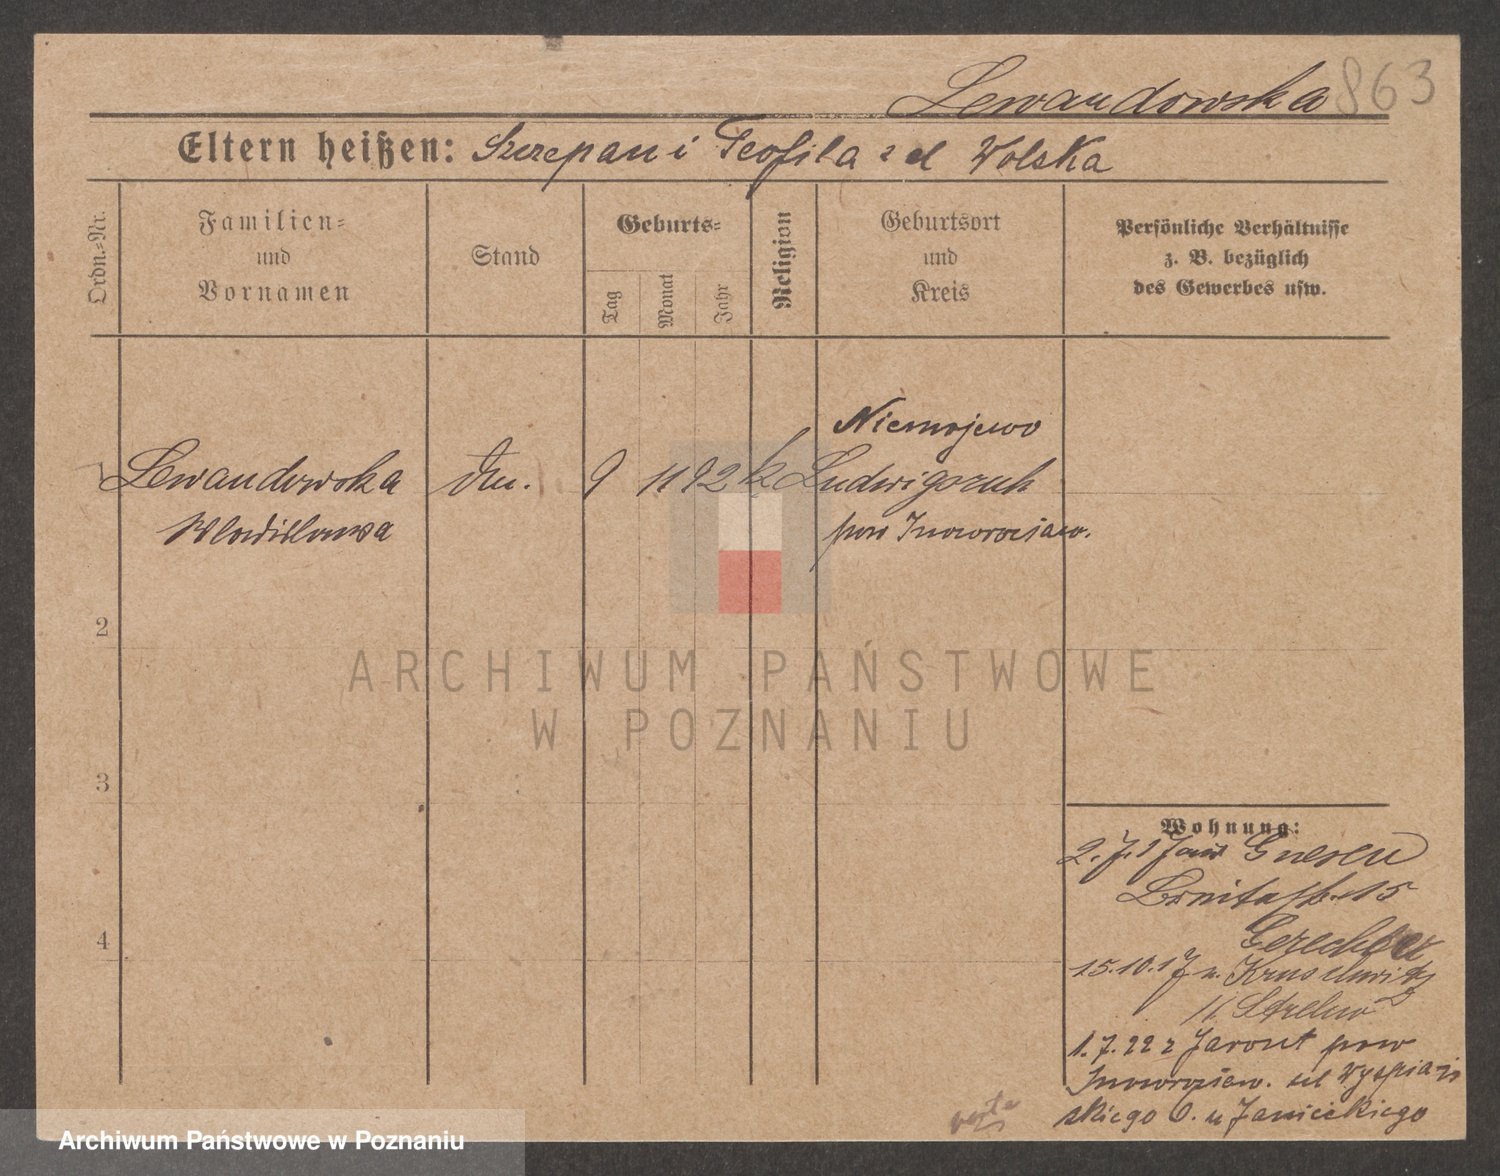 Lewandowska 863
Eltern heißen: Szczepan i Teofila z d Wolska
Ordn.=Nr.
Familien=
und
Vornamen
Stand
Geburts=
Tag
Monat
Jahr
Religion
Geburtsort
und
Kreis
Persönliche Verhältnisse
z. B. bezüglich
des Gewerbes usw.
Niemojewo
1 Lewandowska 9 11 92 k Ludwigsruh
pow Inowrocław.
2
3
4
Wohnung:
Gnesen
15
15.10.17 n. Kruschwitz
Strelno
1.7.22 z Jaront pow
Inowrocław. ul Wyspiań
skiego 6. u Janickiego
ARCHIWUM PAŃSTWOWE
W POZNANIU
Archiwum Państwowe w Poznaniu